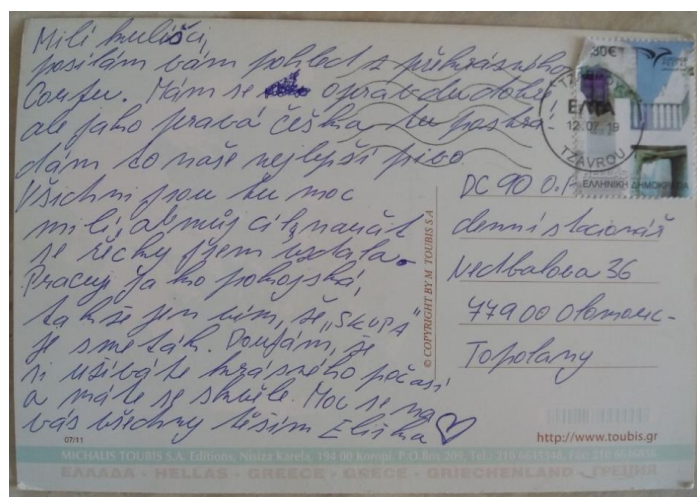 Milí kulíšci,
posílám vám pohled z překrásného
Corfu. Mám se opravdu dobře,
ale jako pravá češka tu postrá-
dám to naše nejlepší pivo
Všichni jsou tu moc
milí, ale můj cíl naučit
se řecky jsem vzdala.
Pracuji jako pokojská,
takže jen vím, že „SKUPA"
je smeták. Doufám, že
si užíváte krásného počasí
a máte se skvěle. Moc se na
vás všechny těším Eliška ♡
30€
ΕΛΤΑ
12.07.19
TZAVROU
ΕΛΛΗΝΙΚΗ ΔΗΜΟΚΡΑΤΙΑ
DC 90 o.
denní stacionář
Nedbalova 36
779 00 Olomouc-
Topolany
© COPYRIGHT BY M. TOUBIS S.A
07/11
http://www.toubis.gr
MICHALIS TOUBIS S.A. Editions, Nisiza Karela, 194 00 Koropi, P.O.Box 209, Tel.: 210
ΕΛΛΑΔΑ - HELLAS - GREECE - GRÈCE - GRIECHENLAND - ГРЕЦИЯ